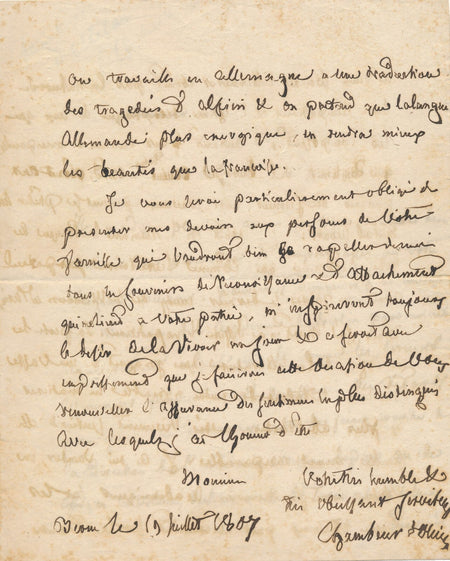 On travaille en allemagne a une traduction
des tragedies d'alfieri & on pretend que la langue
Allemande plus energique, en rendra mieux
les beautés que la française.
Je vous serai particulierement obligé de
presenter mes devoirs aux personnes de Votre
famille qui voudront bien se rappeller de moi
dans les souvenirs de reconnaissance & d'attachement
qui me lient a votre patrie, m'inspireront toujours
le desir de la revoir un jour & ce serait avec
empressement que je saisirai cette occasion de Vous
renouveller l'assurance des sentimens les plus distingués
avec lesquels j'ai l'honneur d'etre
Monsieur
Votre très humble &
très obéissant serviteur
Chambeur
le 19 Juillet 1807